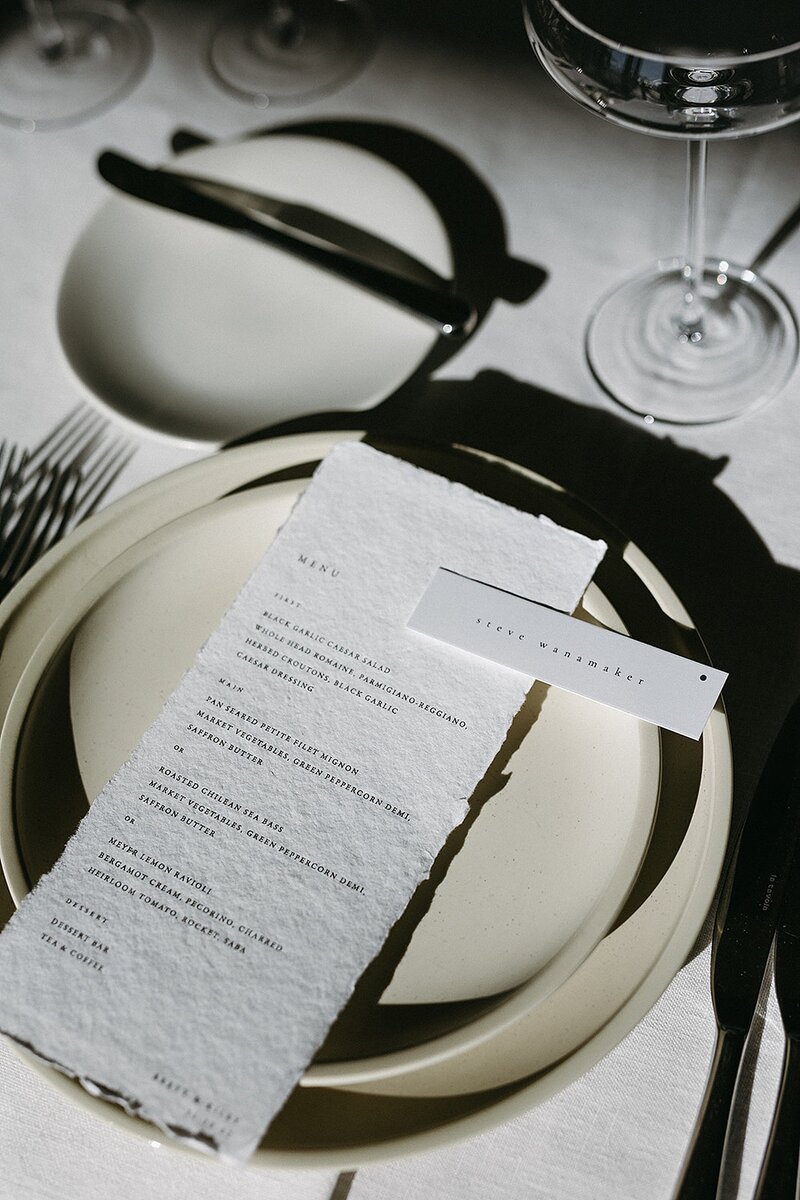 MENU
FIRST
BLACK GARLIC CAESAR SALAD
WHOLE HEAD ROMAINE, PARMIGIANO-REGGIANO,
HERBED CROUTONS, BLACK GARLIC
CAESAR DRESSING
MAIN
PAN SEARED PETITE FILET MIGNON
MARKET VEGETABLES, GREEN PEPPERCORN DEMI,
SAFFRON BUTTER
OR
ROASTED CHILEAN SEA BASS
MARKET VEGETABLES, GREEN PEPPERCORN DEMI,
SAFFRON BUTTER
OR
MEYER LEMON RAVIOLI
BERGAMOT CREAM, PECORINO, CHARRED
HEIRLOOM TOMATO, ROCKET, SABA
DESSERT
DESSERT BAR
TEA & COFFEE
steve wanamaker